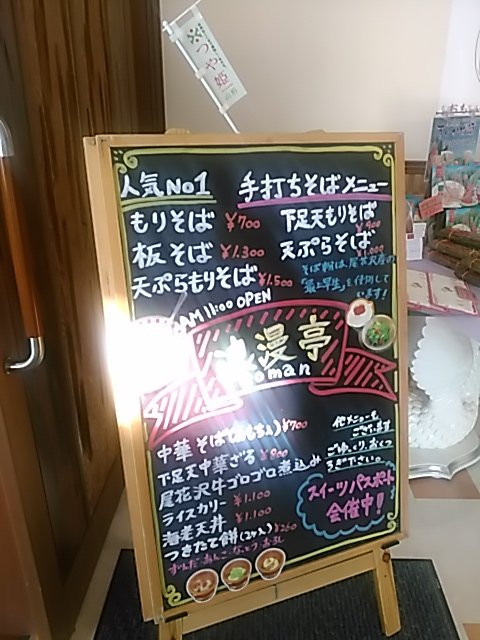 つや姫
人気No1 手打ちそばメニュー
もりそば ¥700
下足天もりそば
¥900
板そば ¥1.300
天ぷらそば
¥1,000
天ぷらもりそば ¥1,500
そば粉は尾花沢産の
「最上早生」を使用して
います!
AM 11:00 OPEN
漫亭
oman
中華そば ¥700
下足天中華ざる ¥800
尾花沢牛ゴロゴロ煮込み
ライスカリー ¥1.100
海老天丼 ¥1.100
つきたて餅(2ヶ入) ¥260
ずんだ あんこ なっとう おろし
他メニューも
ございます
ごゆっくり、おくつ
ろぎ下さい。
スイーツパスポート
開催中!